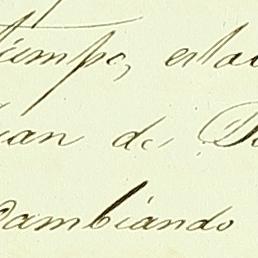 tiempo, esta
an de
cambiando